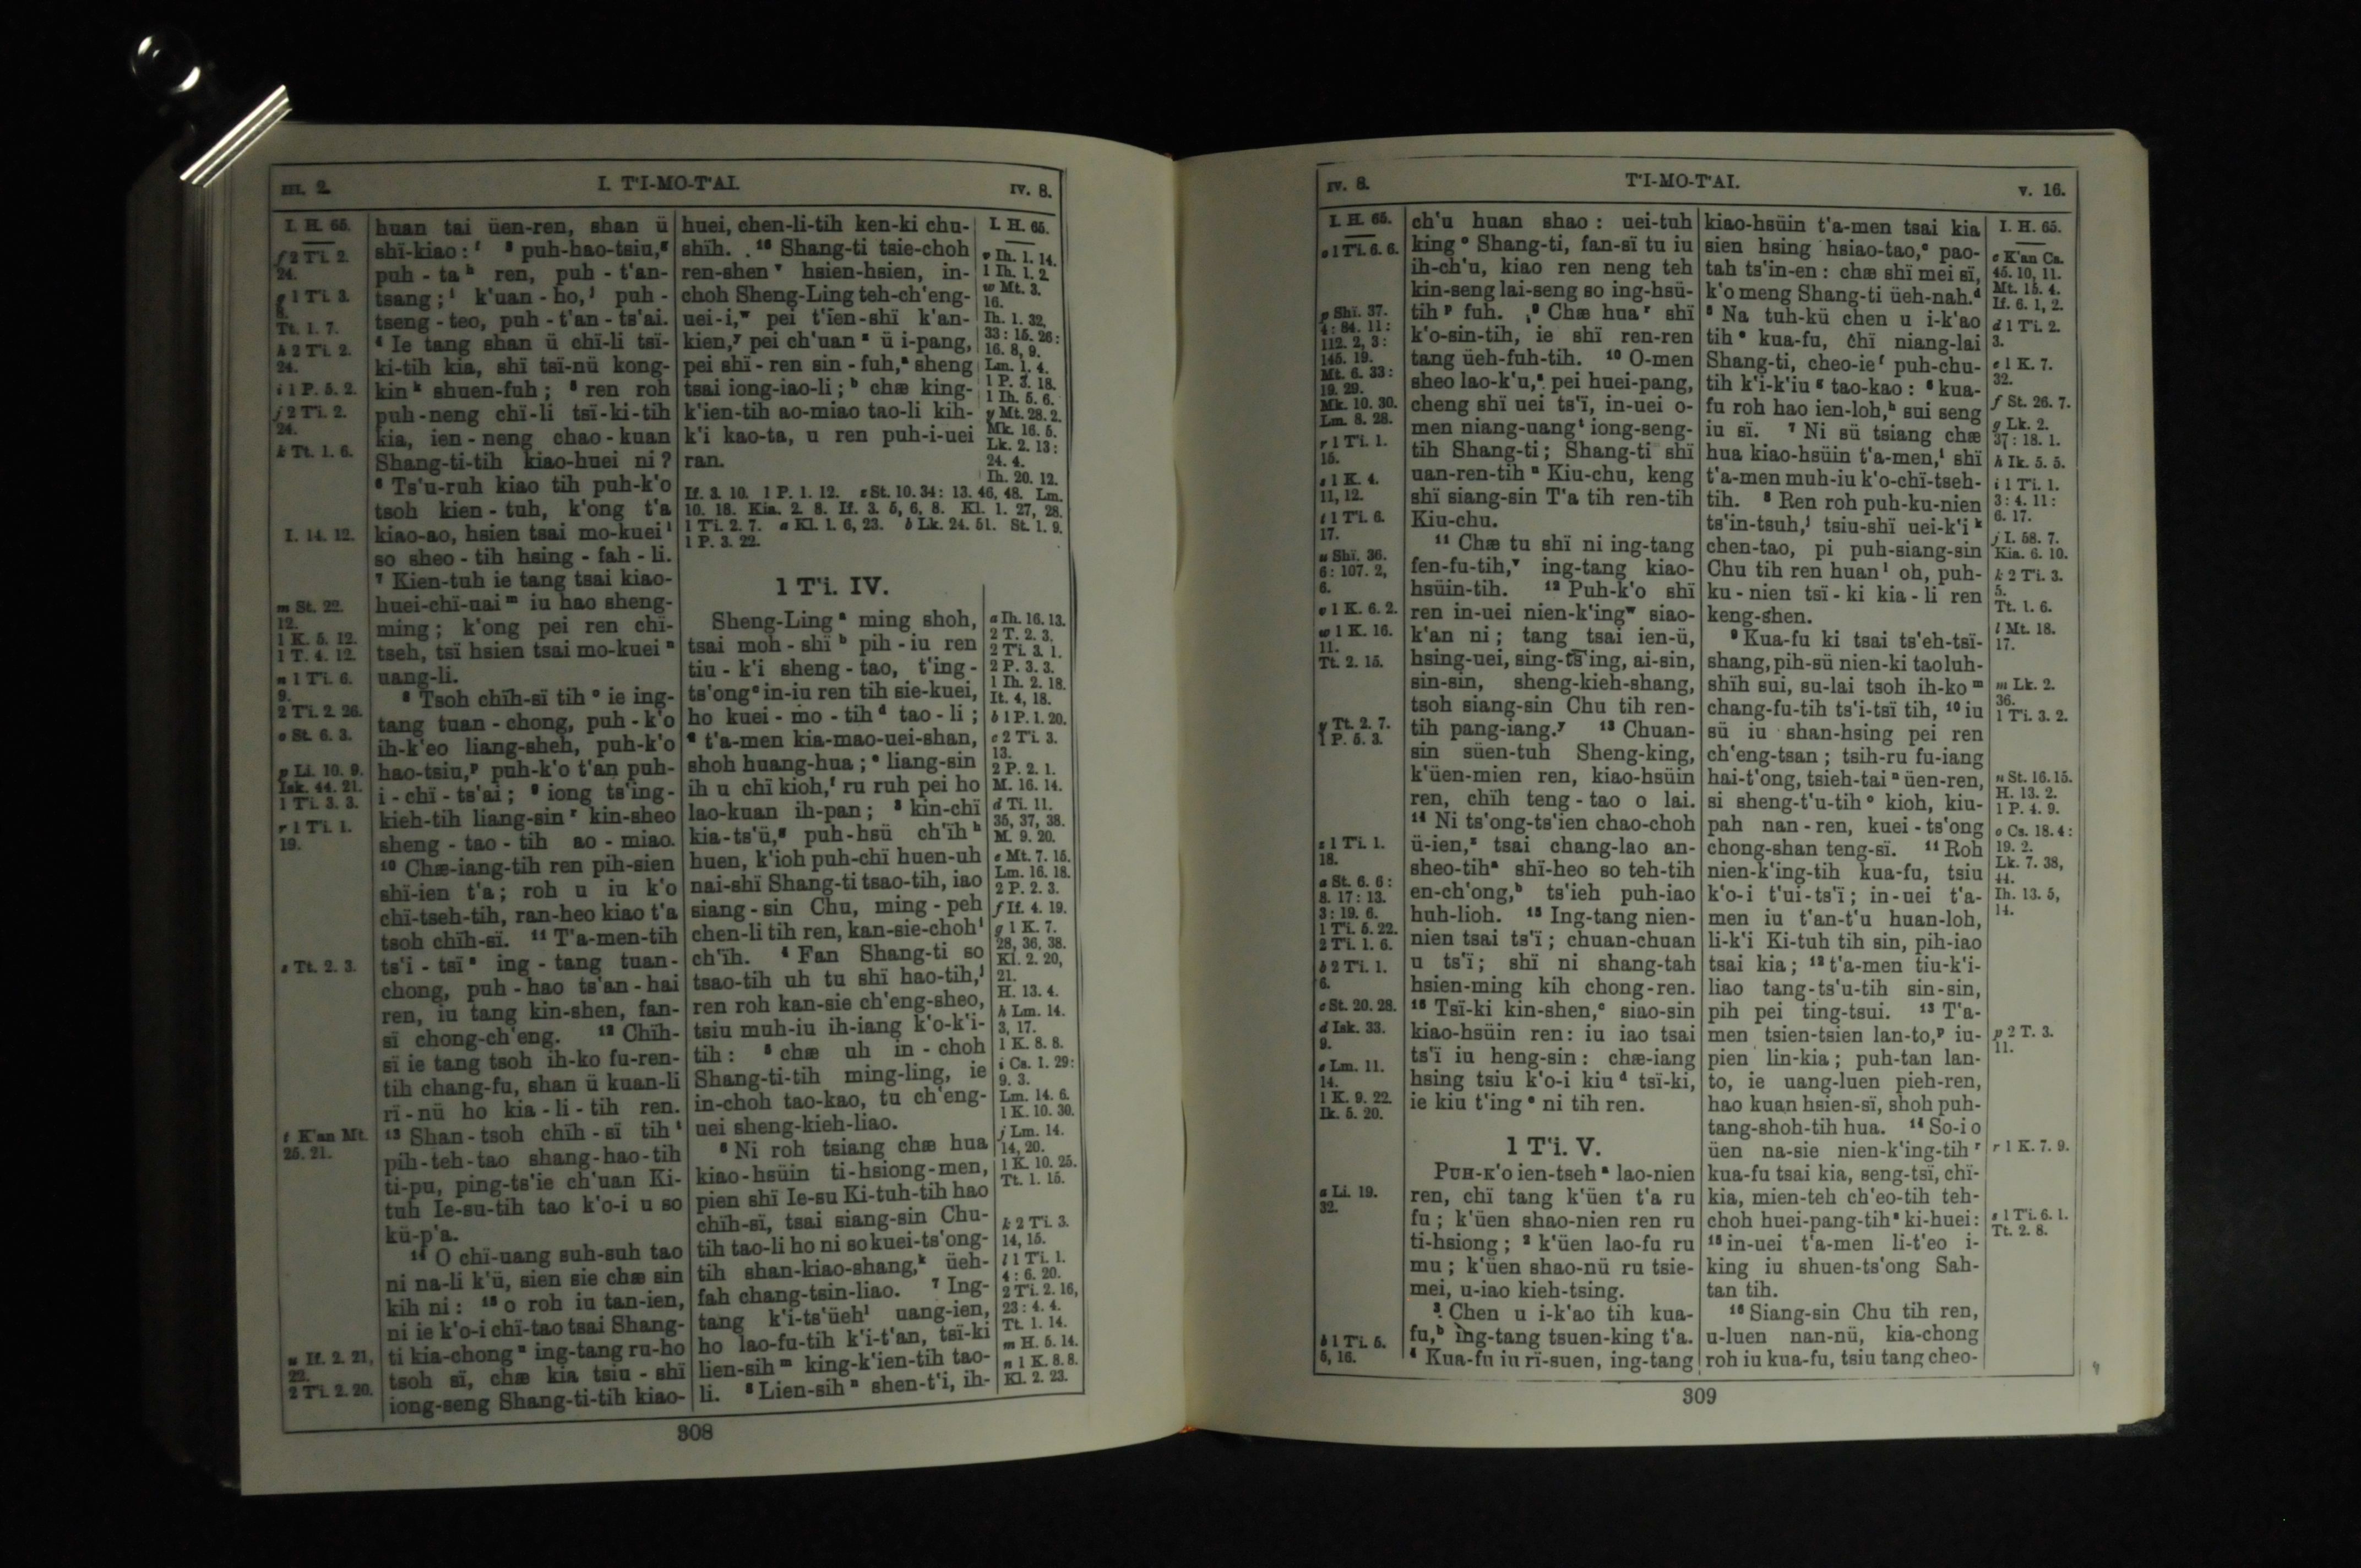 III. 2. I. T'I-MO-T'AI. IV. 8.
I. H. 65.
f 2 Ti. 2.
24.
g 1 Ti. 3.
8.
Tt. 1. 7.
h 2 Ti. 2.
24.
i 1 P. 5. 2.
j 2 Ti. 2.
24.
k Tt. 1. 6.
I. 14. 12.
m St. 22.
12.
1 K. 5. 12.
1 T. 4. 12.
n 1 Ti. 6.
9.
2 Ti. 2. 26.
o St. 6. 3.
p Li. 10. 9.
Isk. 44. 21.
1 Ti. 3. 3.
r 1 Ti. 1.
19.
s Tt. 2. 3.
t K'an Mt.
25. 21.
u If. 2. 21,
22.
2 Ti. 2. 20.
huan tai üen-ren, shan ü
shï-kiao: f 3 puh-hao-tsiu, g
puh-ta h ren, puh-t'an-
tsang; i k'uan-ho, j puh-
tseng-teo, puh-t'an-ts'ai.
4 Ie tang shan ü chï-li tsï-
ki-tih kia, shï tsï-nü kong-
kin k shuen-fuh; 5 ren roh
puh-neng chï-li tsï-ki-tih
kia, ien-neng chao-kuan
Shang-ti-tih kiao-huei ni?
6 Ts'u-ruh kiao tih puh-k'o
tsoh kien-tuh, k'ong t'a
kiao-ao, hsien tsai mo-kuei l
so sheo-tih hsing-fah-li.
7 Kien-tuh ie tang tsai kiao-
huei-chï-uai m iu hao sheng-
ming; k'ong pei ren chï-
tseh, tsï hsien tsai mo-kuei n
uang-li.
8 Tsoh chïh-sï tih o ie ing-
tang tuan-chong, puh-k'o
ih-k'eo liang-sheh, puh-k'o
hao-tsiu, p puh-k'o t'an puh-
i-chï-ts'ai; 9 iong ts'ing-
kieh-tih liang-sin r kin-sheo
sheng-tao-tih ao-miao.
10 Chæ-iang-tih ren pih-sien
shï-ien t'a; roh u iu k'o
chï-tseh-tih, ran-heo kiao t'a
tsoh chïh-sï. 11 T'a-men-tih
ts'i-tsï s ing-tang tuan-
chong, puh-hao ts'an-hai
ren, iu tang kin-shen, fan-
sï chong-ch'eng. 12 Chïh-
sï ie tang tsoh ih-ko fu-ren-
tih chang-fu, shan ü kuan-li
rï-nü ho kia-li-tih ren.
13 Shan-tsoh chïh-sï tih t
pih-teh-tao shang-hao-tih
ti-pu, ping-ts'ie ch'uan Ki-
tuh Ie-su-tih tao k'o-i u so
kü-p'a.
14 O chï-uang suh-suh tao
ni na-li k'ü, sien sie chæ sin
kih ni: 15 o roh iu tan-ien,
ni ie k'o-i chï-tao tsai Shang-
ti kia-chong u ing-tang ru-ho
tsoh sï, chæ kia tsiu-shï
iong-seng Shang-ti-tih kiao-
huei, chen-li-tih ken-ki chu-
shïh. 16 Shang-ti tsie-choh
ren-shen v hsien-hsien, in-
choh Sheng-Ling teh-ch'eng-
uei-i, w pei t'ien-shï k'an-
kien, y pei ch'uan z ü i-pang,
pei shï-ren sin-fuh, a sheng
tsai iong-iao-li; b chæ king-
k'ien-tih ao-miao tao-li kih-
k'i kao-ta, u ren puh-i-uei
ran.
I. H. 65.
v Ih. 1. 14.
1 Ih. 1. 2.
w Mt. 3.
16.
Ih. 1. 32,
33: 15. 26:
16. 8, 9.
Lm. 1. 4.
1 P. 3. 18.
1 Ih. 5. 6.
y Mt. 28. 2.
Mk. 16. 5.
Lk. 2. 13:
24. 4.
Ih. 20. 12.
If. 3. 10. 1 P. 1. 12. z St. 10. 34: 13. 46, 48. Lm.
10. 18. Kia. 2. 8. If. 3. 5, 6, 8. Kl. 1. 27, 28.
1 Ti. 2. 7. a Kl. 1. 6, 23. b Lk. 24. 51. St. 1. 9.
1 P. 3. 22.
1 T'i. IV.
Sheng-Ling a ming shoh,
tsai moh-shï b pih-iu ren
tiu-k'i sheng-tao, t'ing-
ts'ong c in-iu ren tih sie-kuei,
ho kuei-mo-tih d tao-li;
2 t'a-men kia-mao-uei-shan,
shoh huang-hua; e liang-sin
ih u chï kioh, f ru ruh pei ho
lao-kuan ih-pan; 3 kin-chï
kia-ts'ü, g puh-hsü ch'ïh h
huen, k'ioh puh-chï huen-uh
nai-shï Shang-ti tsao-tih, iao
siang-sin Chu, ming-peh
chen-li tih ren, kan-sie-choh i
ch'ïh. 4 Fan Shang-ti so
tsao-tih uh tu shï hao-tih, j
ren roh kan-sie ch'eng-sheo,
tsiu muh-iu ih-iang k'o-k'i-
tih: 5 chæ uh in-choh
Shang-ti-tih ming-ling, ie
in-choh tao-kao, tu ch'eng-
uei sheng-kieh-liao.
6 Ni roh tsiang chæ hua
kiao-hsüin ti-hsiong-men,
pien shï Ie-su Ki-tuh-tih hao
chïh-sï, tsai siang-sin Chu-
tih tao-li ho ni so kuei-ts'ong-
tih shan-kiao-shang, k üeh-
fah chang-tsin-liao. 7 Ing-
tang k'i-ts'üeh l uang-ien,
ho lao-fu-tih k'i-t'an, tsï-ki
lien-sih m king-k'ien-tih tao-
li. 8 Lien-sih n shen-t'i, ih-
a Ih. 16. 13.
2 T. 2. 3.
2 Ti. 3. 1.
2 P. 3. 3.
1 Ih. 2. 18.
It. 4, 18.
b 1 P. 1. 20.
c 2 Ti. 3.
13.
2 P. 2. 1.
M. 16. 14.
d Ti. 11.
35, 37, 38.
M. 9. 20.
e Mt. 7. 15.
Lm. 16. 18.
2 P. 2. 3.
f If. 4. 19.
g 1 K. 7.
28, 36, 38.
Kl. 2. 20,
21.
H. 13. 4.
h Lm. 14.
3, 17.
1 K. 8. 8.
i Cs. 1. 29:
9. 3.
Lm. 14. 6.
1 K. 10. 30.
j Lm. 14.
14, 20.
1 K. 10. 25.
Tt. 1. 15.
k 2 Ti. 3.
14, 15.
l 1 Ti. 1.
4: 6. 20.
2 Ti. 2. 16,
23: 4. 4.
Tt. 1. 14.
m H. 5. 14.
n 1 K. 8. 8.
Kl. 2. 23.
308
IV. 8. T'I-MO-T'AI. V. 16.
I. H. 65.
o 1 Ti. 6. 6.
p Shï. 37.
4: 84. 11:
112. 2, 3:
145. 19.
Mt. 6. 33:
19. 29.
Mk. 10. 30.
Lm. 8. 28.
r 1 Ti. 1.
15.
s 1 K. 4.
11, 12.
t 1 Ti. 6.
17.
u Shï. 36.
6: 107. 2,
6.
v 1 K. 6. 2.
w 1 K. 16.
11.
Tt. 2. 15.
y Tt. 2. 7.
1 P. 5. 3.
z 1 Ti. 1.
18.
a St. 6. 6:
8. 17: 13.
3: 19. 6.
1 Ti. 5. 22.
2 Ti. 1. 6.
b 2 Ti. 1.
6.
c St. 20. 28.
d Isk. 33.
9.
e Lm. 11.
14.
1 K. 9. 22.
Ik. 5. 20.
a Li. 19.
32.
b 1 Ti. 5.
5, 16.
ch'u huan shao: uei-tuh
king o Shang-ti, fan-sï tu iu
ih-ch'u, kiao ren neng teh
kin-seng lai-seng so ing-hsü-
tih p fuh. 9 Chæ hua r shï
k'o-sin-tih, ie shï ren-ren
tang üeh-fuh-tih. 10 O-men
sheo lao-k'u, s pei huei-pang,
cheng shï uei ts'ï, in-uei o-
men niang-uang t iong-seng-
tih Shang-ti; Shang-ti shï
uan-ren-tih u Kiu-chu, keng
shï siang-sin T'a tih ren-tih
Kiu-chu.
11 Chæ tu shï ni ing-tang
fen-fu-tih, v ing-tang kiao-
hsüin-tih. 12 Puh-k'o shï
ren in-uei nien-k'ing w siao-
k'an ni; tang tsai ien-ü,
hsing-uei, sing-ts'ing, ai-sin,
sin-sin, sheng-kieh-shang,
tsoh siang-sin Chu tih ren-
tih pang-iang. y 13 Chuan-
sin süen-tuh Sheng-king,
k'üen-mien ren, kiao-hsüin
ren, chïh teng-tao o lai.
14 Ni ts'ong-ts'ien chao-choh
ü-ien, z tsai chang-lao an-
sheo-tih a shï-heo so teh-tih
en-ch'ong, b ts'ieh puh-iao
huh-lioh. 15 Ing-tang nien-
nien tsai ts'ï; chuan-chuan
u ts'ï; shï ni shang-tah
hsien-ming kih chong-ren.
16 Tsï-ki kin-shen, c siao-sin
kiao-hsüin ren: iu iao tsai
ts'ï iu heng-sin: chæ-iang
hsing tsiu k'o-i kiu d tsï-ki,
ie kiu t'ing e ni tih ren.
1 T'i. V.
PUH-K'O ien-tseh a lao-nien
ren, chï tang k'üen t'a ru
fu; k'üen shao-nien ren ru
ti-hsiong; 2 k'üen lao-fu ru
mu; k'üen shao-nü ru tsie-
mei, u-iao kieh-tsing.
3 Chen u i-k'ao tih kua-
fu, b ing-tang tsuen-king t'a.
4 Kua-fu iu rï-suen, ing-tang
kiao-hsüin t'a-men tsai kia
sien hsing hsiao-tao, c pao-
tah ts'in-en: chæ shï mei sï,
k'o meng Shang-ti üeh-nah. d
5 Na tuh-kü chen u i-k'ao
tih e kua-fu, chï niang-lai
Shang-ti, cheo-ie f puh-chu-
tih k'i-k'iu g tao-kao: 6 kua-
fu roh hao ien-loh, h sui seng
iu sï. 7 Ni sü tsiang chæ
hua kiao-hsüin t'a-men, i shï
t'a-men muh-iu k'o-chï-tseh-
tih. 8 Ren roh puh-ku-nien
ts'in-tsuh, j tsiu-shï uei-k'i k
chen-tao, pi puh-siang-sin
Chu tih ren huan l oh, puh-
ku-nien tsï-ki kia-li ren
keng-shen.
9 Kua-fu ki tsai ts'eh-tsï-
shang, pih-sü nien-ki tao luh-
shïh sui, su-lai tsoh ih-ko m
chang-fu-tih ts'i-tsï tih, 10 iu
sü iu shan-hsing pei ren
ch'eng-tsan; tsih-ru fu-iang
hai-t'ong, tsieh-tai n üen-ren,
si sheng-t'u-tih o kioh, kiu-
pah nan-ren, kuei-ts'ong
chong-shan teng-sï. 11 Roh
nien-k'ing-tih kua-fu, tsiu
k'o-i t'ui-ts'ï; in-uei t'a-
men iu t'an-t'u huan-loh,
li-k'i Ki-tuh tih sin, pih-iao
tsai kia; 12 t'a-men tiu-k'i-
liao tang-ts'u-tih sin-sin,
pih pei ting-tsui. 13 T'a-
men tsien-tsien lan-to, p iu-
pien lin-kia; puh-tan lan-
to, ie uang-luen pieh-ren,
hao kuan hsien-sï, shoh puh-
tang-shoh-tih hua. 14 So-i o
üen na-sie nien-k'ing-tih r
kua-fu tsai kia, seng-tsï, chï-
kia, mien-teh ch'eo-tih teh-
choh huei-pang-tih s ki-huei:
15 in-uei t'a-men li-t'eo i-
king iu shuen-ts'ong Sah-
tan tih.
16 Siang-sin Chu tih ren,
u-luen nan-nü, kia-chong
roh iu kua-fu, tsiu tang cheo-
I. H. 65.
c K'an Cs.
45. 10, 11.
Mt. 15. 4.
If. 6. 1, 2.
d 1 Ti. 2.
3.
e 1 K. 7.
32.
f St. 26. 7.
g Lk. 2.
37: 18. 1.
h Ik. 5. 5.
i 1 Ti. 1.
3: 4. 11:
6. 17.
j I. 58. 7.
Kia. 6. 10.
k 2 Ti. 3.
5.
Tt. 1. 6.
l Mt. 18.
17.
m Lk. 2.
36.
1 Ti. 3. 2.
n St. 16. 15.
H. 13. 2.
1 P. 4. 9.
o Cs. 18. 4:
19. 2.
Lk. 7. 38,
44.
Ih. 13. 5,
14.
p 2 T. 3.
11.
r 1 K. 7. 9.
s 1 Ti. 6. 1.
Tt. 2. 8.
309